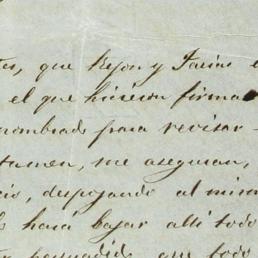 tes, que Rejon y Farias e
el que hicieron firmar
nombrado para revisar
tamen, me aseguran,
cio, despojando al mism
hará bajar allí todo
persuadido que todo